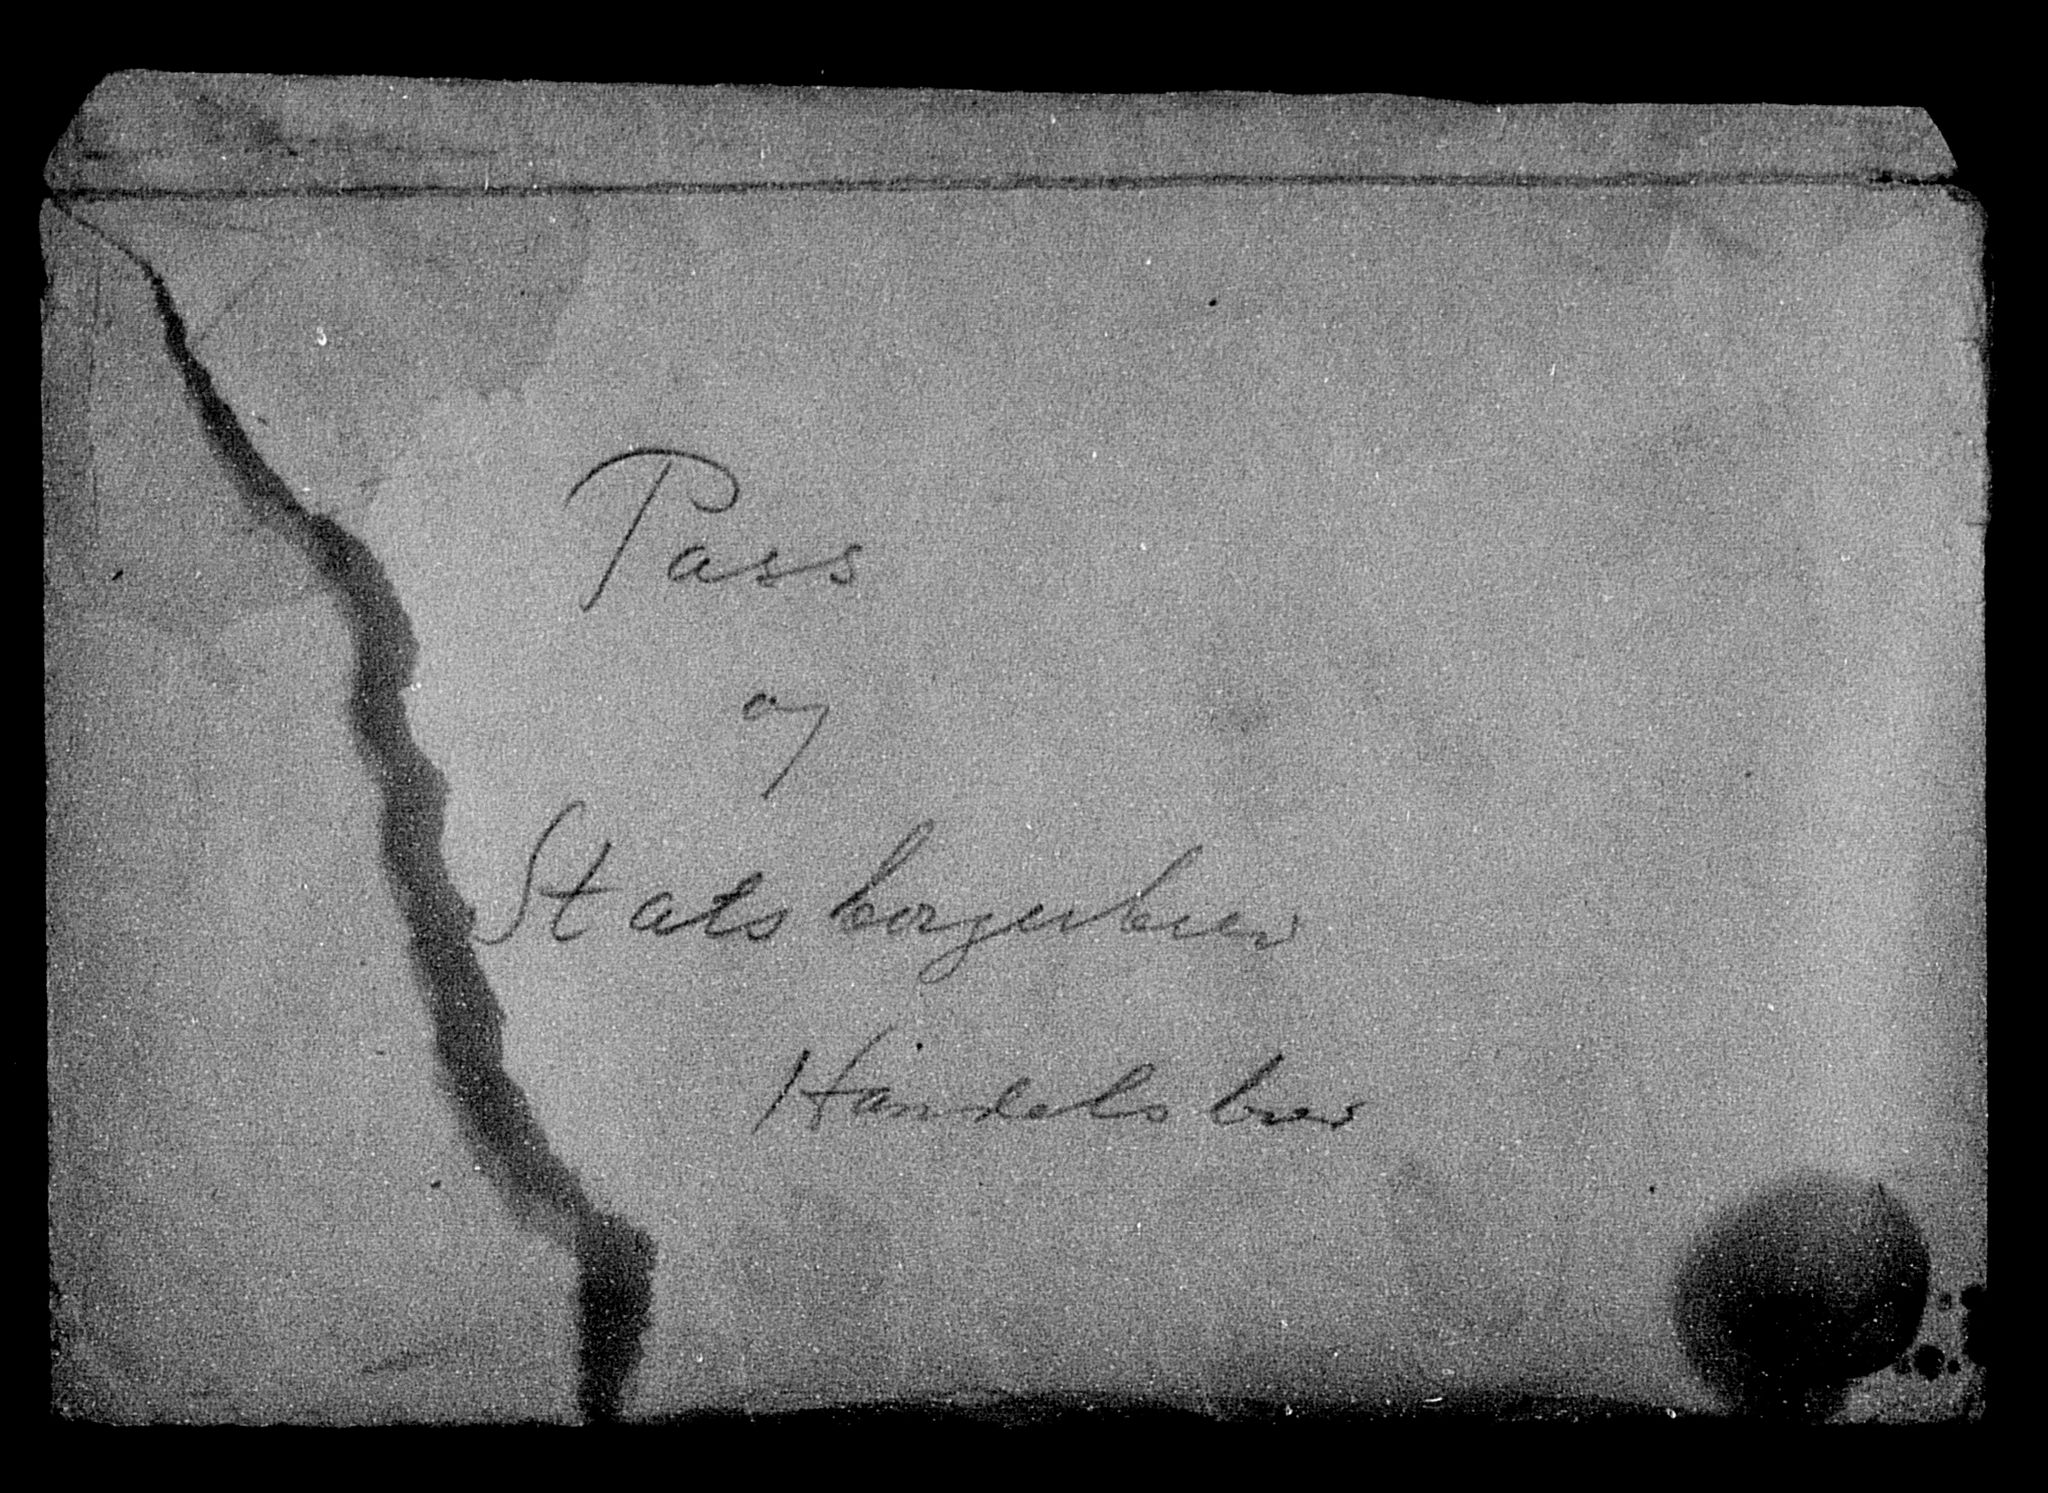 Pass
og
Statsborgerbrev
Handelsbrev